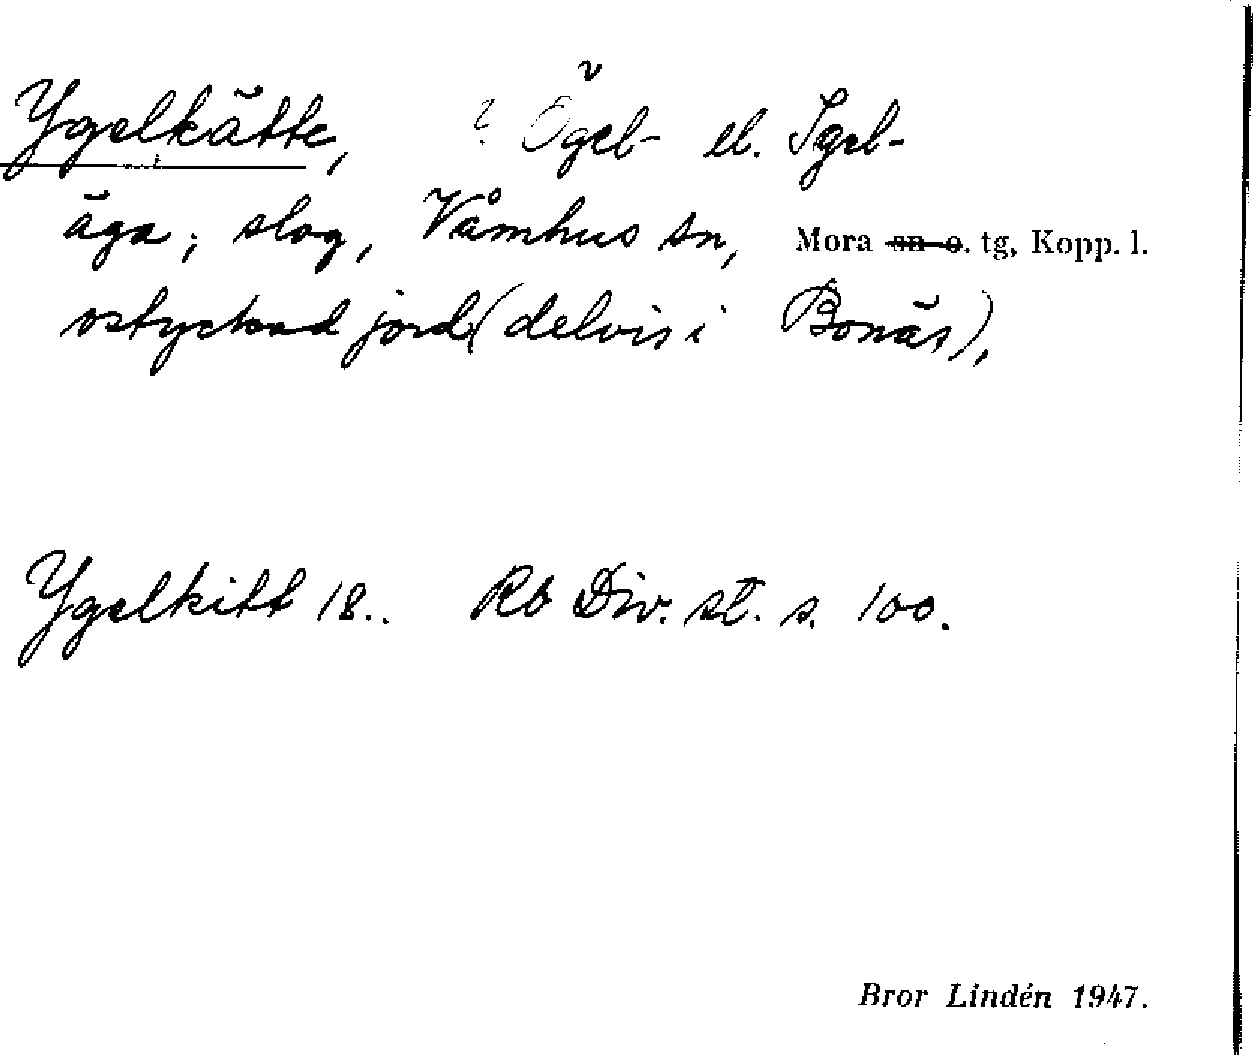 Ygelkätte, ? Ögel- el. Igel-
äga; slog, Våmhus sn, Mora sn o. tg, Kopp. l.
ostyckad jord (delvis i Bonäs),
Ygelkitt 18.. Rb Div. st. s. 100.
Bror Lindén 1947.